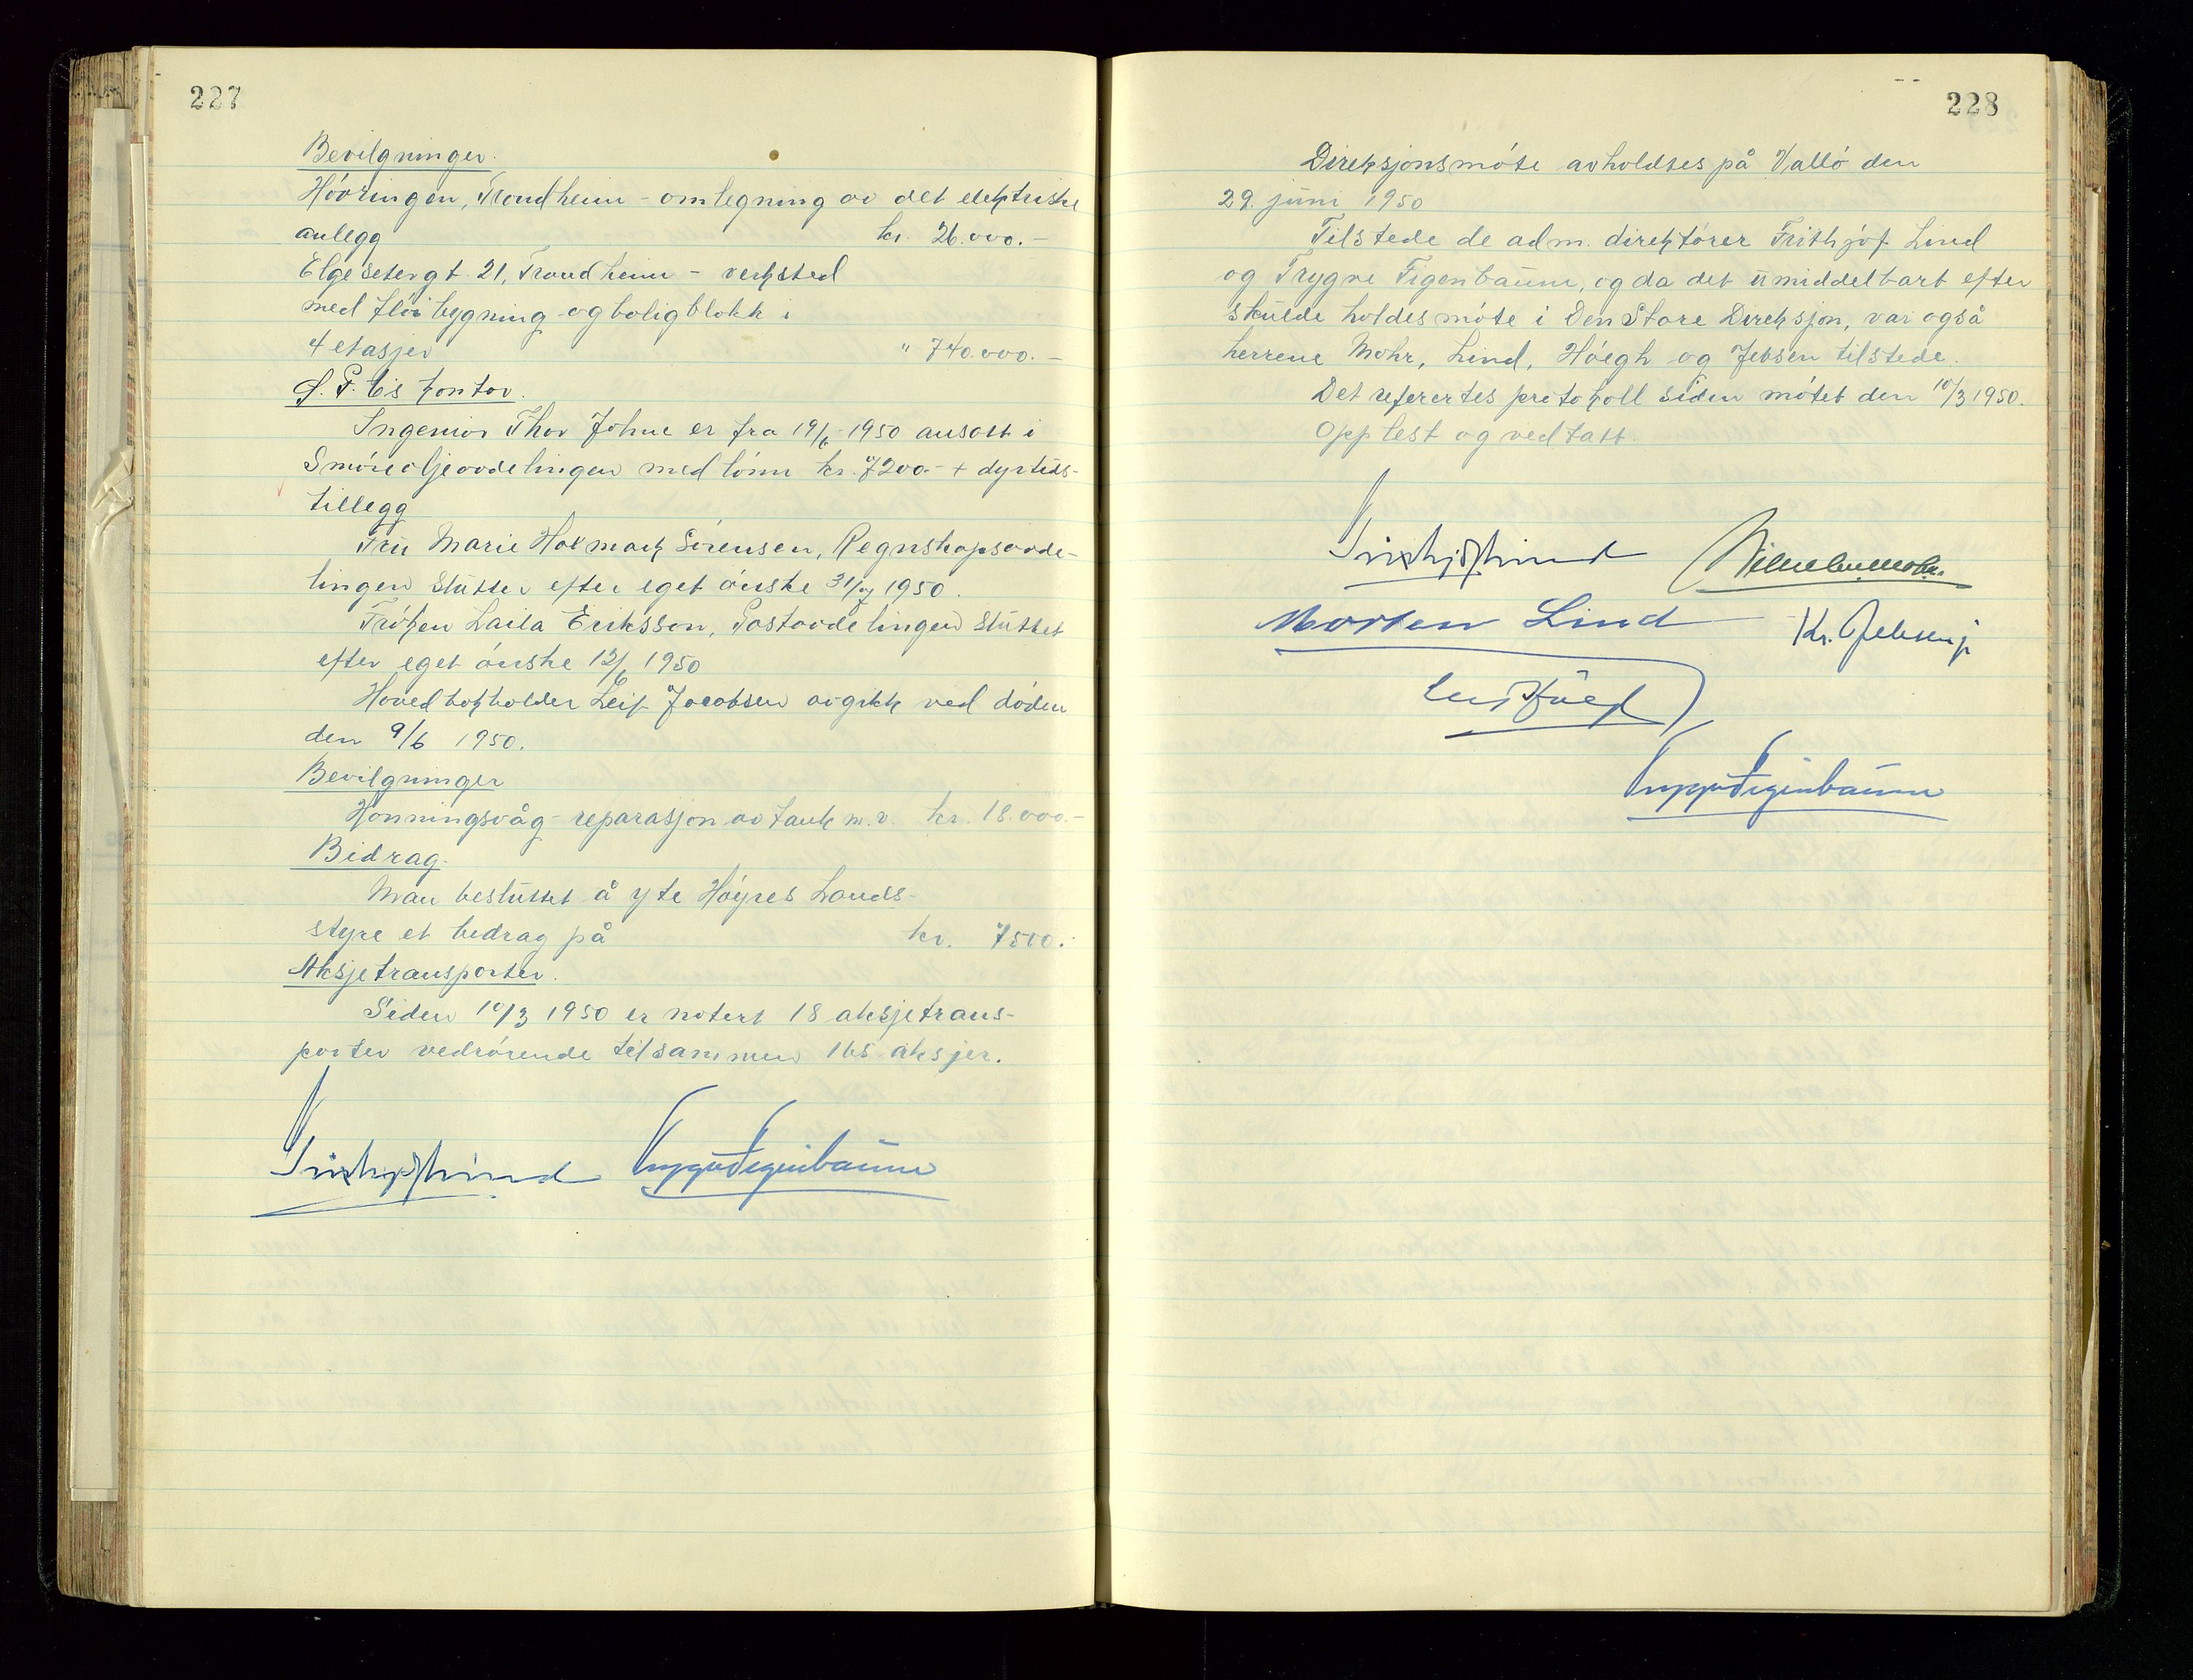 227
Bevilgninger.
Høvringen, Trondheim - omlegning av det elektriske
anlegg kr. 26.000.-
Elgesetergt. 21, Trondheim - verksted
med fløibygning og boligblokk i
4 etasjer " 740.000.-
kontor.
Ingeniør Thor Johne er fra 19/6 - 1950 ansatt i
Smøreoljeavdelingen med lønn kr. 7200.- + dyrtids-
tillegg
Fru Marie Holmark Sørensen, Regnskapsavde-
lingen slutter efter eget ønske 31/7 1950.
Frøken Laila Eriksson, Postavdelingen sluttet
efter eget ønske 12/6 1950
Hovedbokholder Leif Jacobsen avgikk ved døden
den 9/6 1950.
Bevilgninger
Honningsvåg - reparasjon av tank m.v. kr. 18.000.-
Bidrag.
Man besluttet å yte Høyres Lands-
styre et bedrag på kr. 7500.-
Aksjetransporter.
Siden 10/3 1950 er notert 18 aksjetrans-
porter vedrørende tilsammen 165 aksjer.
Frithjof Lind Trygve Figenbaum
228
Direksjonsmøte avholdtes på Vallø den
29. juni 1950
Tilstede de adm. direktører Frithjof Lind
og Trygve Figenbaum, og da det umiddelbart efter
skulde holdes møte i Den Store Direksjon, var også
herrene Mohr, Lind, Høegh og Jebsen tilstede.
Det referertes protokoll siden møtet den 10/3 1950.
Opplest og vedtatt.
Frithjof Lind Wilhelm Mohr.
Morten Lind Kr. Jebsen jr
Leif Høegh
Trygve Figenbaum